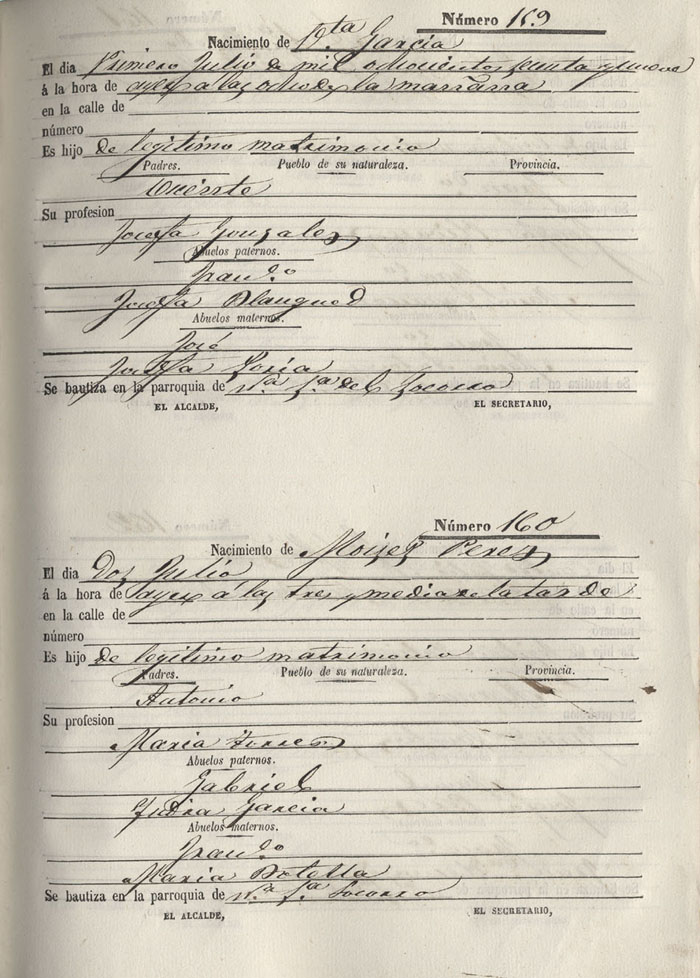 Número 159
Nacimiento de Vta Garcia
El dia Primero Julio de mil ochocientos y nueve
á la hora de ayer a las ocho de la mañana
en la calle de
número
Es hijo de legitimo matrimonio
Padres. Pueblo de su naturaleza. Provincia.
Vicente
Su profesion
Josefa Gonzalez
Abuelos paternos.
Franco
Josefa Blanqued
Abuelos maternos.
José
Josefa Soria
Se bautiza en la parroquia de Nra Sra del Socorro
EL ALCALDE, EL SECRETARIO,
Número 160
Nacimiento de Moises Perez
El dia Dos Julio
á la hora de ayer á las tres y media de la tarde
en la calle de
número
Es hijo de legitimo matrimonio
Padres. Pueblo de su naturaleza. Provincia.
Antonio
Su profesion
Maria Torres
Abuelos paternos.
Gabriel
Garcia
Abuelos maternos.
Franco
Maria Botella
Se bautiza en la parroquia de Nra Sra Socorro
EL ALCALDE, EL SECRETARIO,